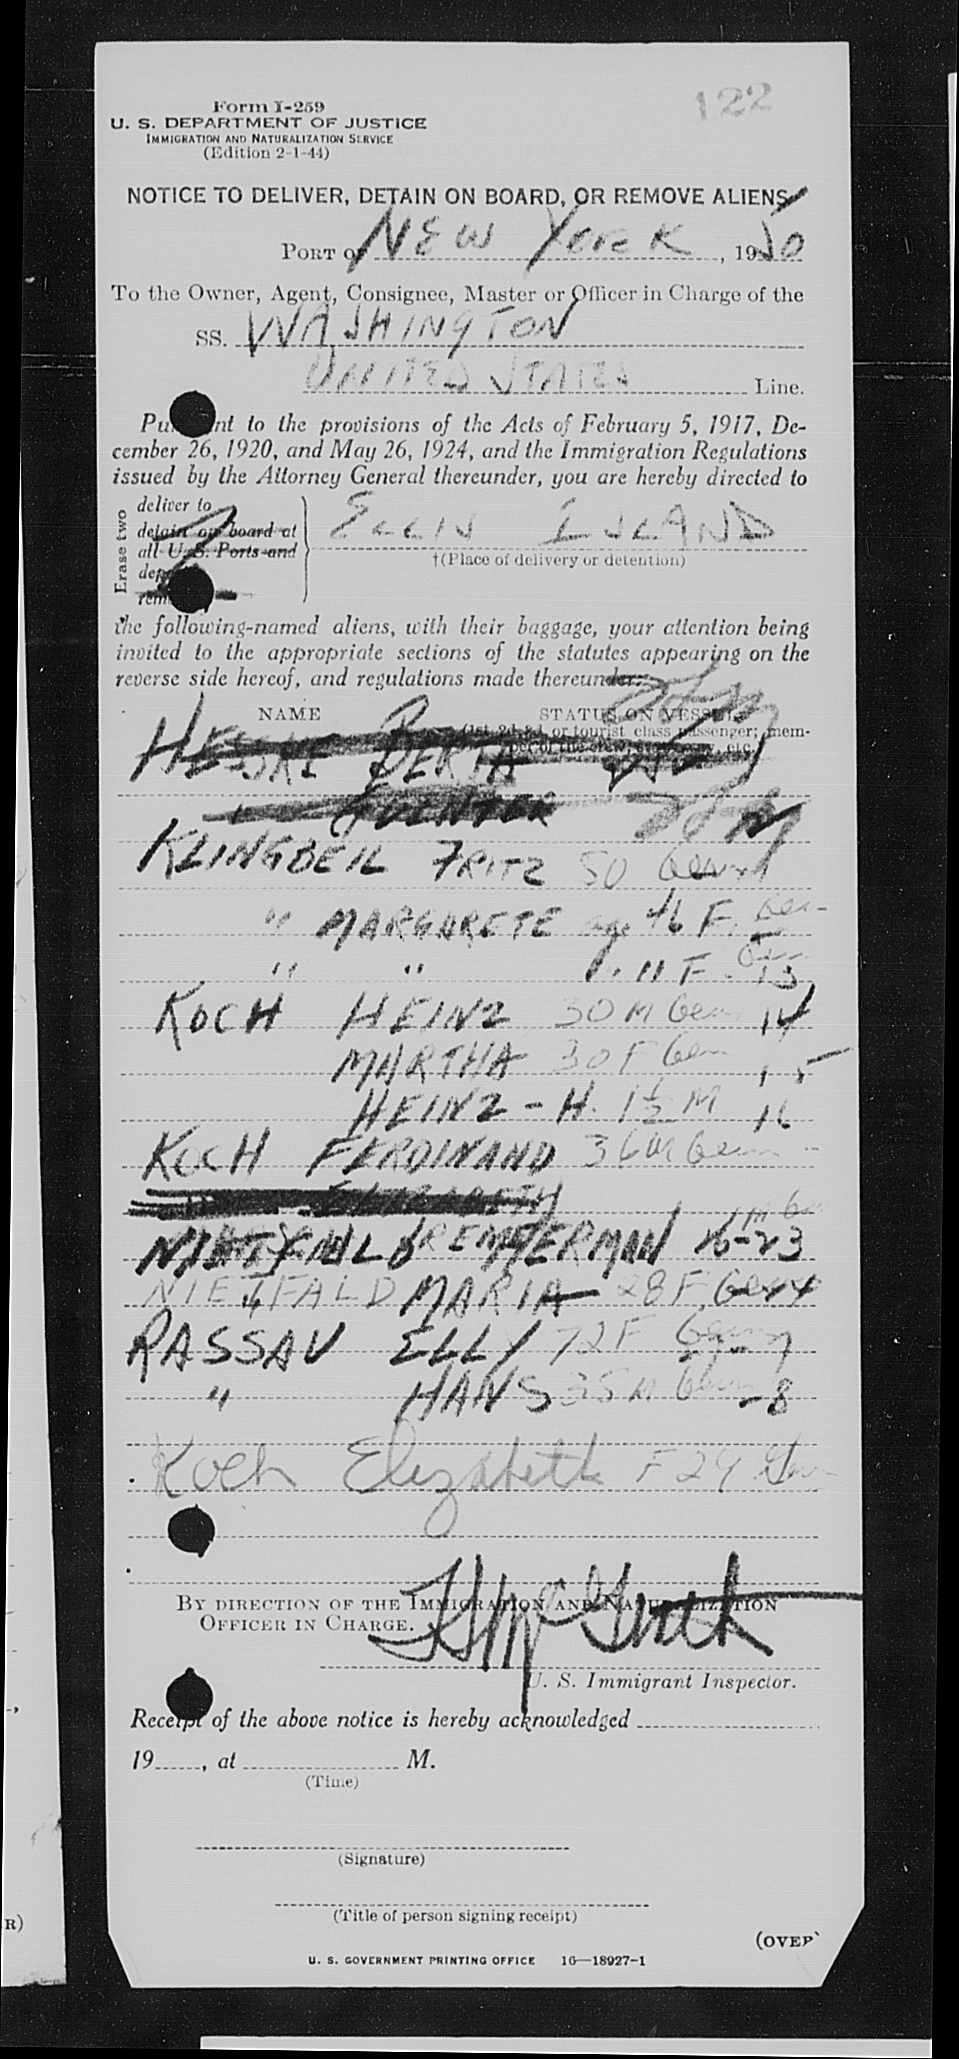 122
Form I-259
U. S. DEPARTMENT OF JUSTICE
IMMIGRATION AND NATURALIZATION SERVICE
(Edition 2-1-44)
NOTICE TO DELIVER, DETAIN ON BOARD, OR REMOVE ALIENS
PORT of NEW YORK, 1950
To the Owner, Agent, Consignee, Master or Officer in Charge of the
SS. WASHINGTON
UNITED STATES Line.
Pu nt to the provisions of the Acts of February 5, 1917, De-
cember 26, 1920, and May 26, 1924, and the Immigration Regulations
issued by the Attorney General thereunder, you are hereby directed to
Erase two
deliver to
detain on board at
all U. S. Ports and
dep
rem
ELLIS ISLAND
†(Place of delivery or detention)
the following-named aliens, with their baggage, your attention being
invited to the appropriate sections of the statutes appearing on the
reverse side hereof, and regulations made thereunder:
NAME STATUS ON VESSEL
(1st, 2d, 3d, or tourist class passenger; mem-
ber of the crew, stowaway, etc.)
BERTA
GUENTER
KLINGBEIL FRITZ 50
" MARGARETE age 46 F. Ger
" " 11 F. Ger 13
KOCH HEINZ 30 M Ger 14
MARTHA 30 F Ger 15
HEINZ - H. 1½ M 16
KOCH FERDINAND 36 M Ger
ELIZABETH
23
NIETFALD MARIA 28 F
RASSAU ELLY 72 F Ger 7
" HANS 35 M Ger - 8
Koch Elizabeth F 29 Ger
BY DIRECTION OF THE IMMIGRATION AND NATURALIZATION
OFFICER IN CHARGE.
U. S. Immigrant Inspector.
Receipt of the above notice is hereby acknowledged
19, at M.
(Time)
(Signature)
(Title of person signing receipt)
(OVER)
U. S. GOVERNMENT PRINTING OFFICE 16—18927-1
R)